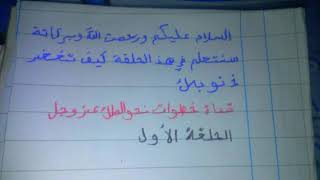 السلام عليكم ورحمت الله وبركاتة
سنتعلم في هذ الحلقة كيف تغفر
ذنوبك
قناة خطوات نحو الملك عز وجل
الحلقة الأول